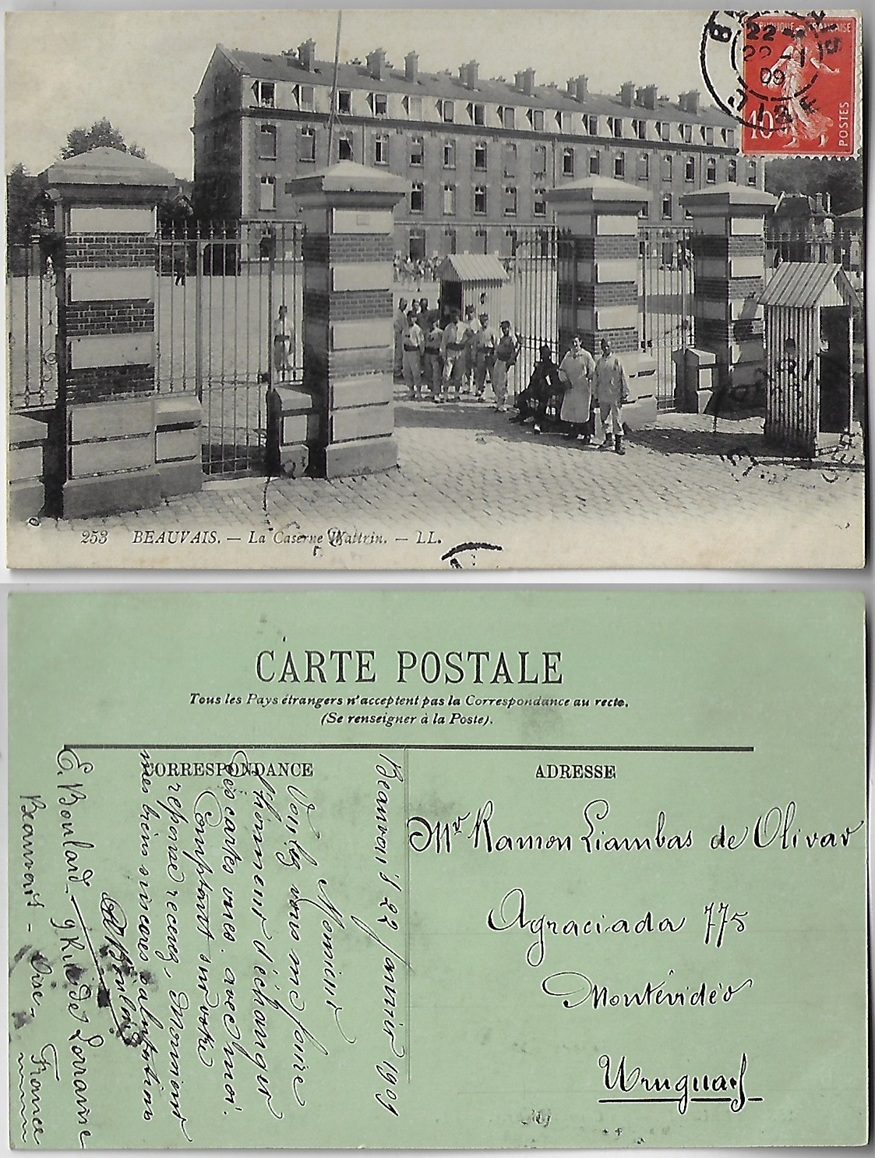 BEAUVAIS
22
22 - 1
09
OISE
RÉPUBLIQUE FRANÇAISE
10c
POSTES
253 BEAUVAIS. — La Caserne Wattrin. — LL.
CARTE POSTALE
Tous les Pays étrangers n'acceptent pas la Correspondance au recto.
(Se renseigner à la Poste).
CORRESPONDANCE
ADRESSE
Beauvais 22 Janvier 1909
Monsieur
Voulez vous me faire
l'honneur d'échanger
des cartes vues. avec moi.
Comptant sur votre
réponse recevez, Monsieur
mes bien sincères salutations
E. Boulard
E. Boulard - 9 Rue de Lorraine
Beauvais - Oise - France
Mr Ramon Liambas de Olivar
Agraciada 775
Montévidéo
Uruguay